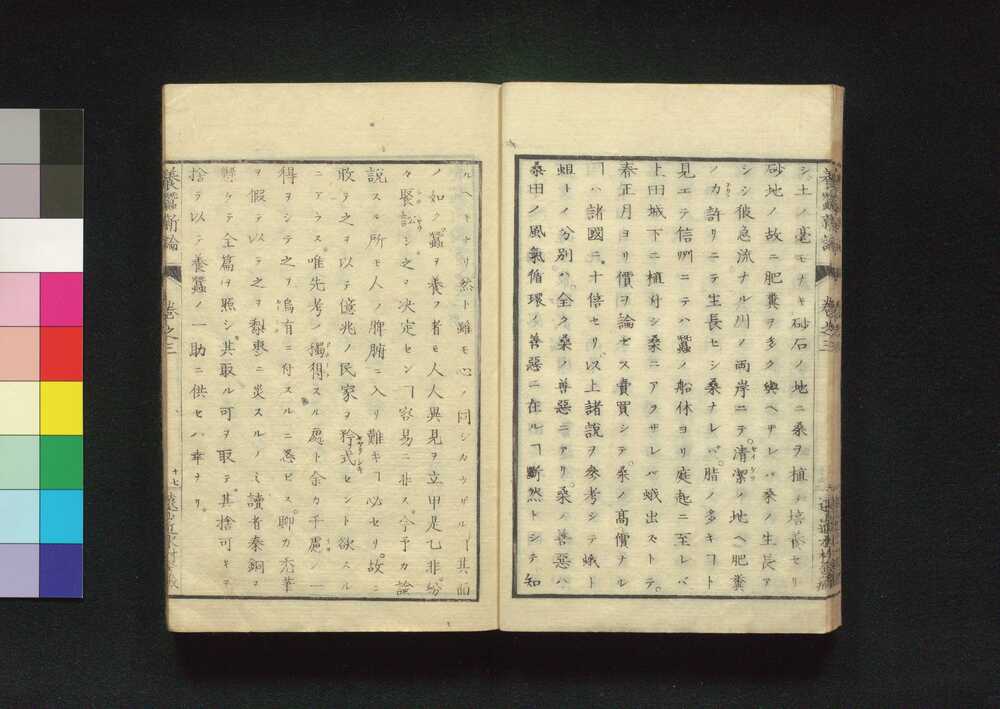 シ土ノ毫モナキ砂石ノ地ニ桑ヲ植ヘ培養セリ
砂地ノ故ニ肥糞ヲ多ク與ヘザレバ桑ノ生長ア
シシ彼急流ナル川ノ両岸ニテ清潔ノ地ヘ肥糞
ノカ許リニテ生長セシ桑ナレバ脂ノ多キヿト
見エテ信州ニテハ蠶ノ船休ヨリ庭起ニ至レバ
上田城下ニ植付シ桑ニアラザレバ蛾出ストテ
春正月ヨリ價ヲ論ゼス賣買シテ桑ノ髙價ナル
ヿハ諸國ニ十倍セリ以上諸説ヲ參考シテ蛾ト
蛆トノ分別ハ全ク桑ノ善惡ニアリ桑ノ善惡ハ
桑田ノ風氣循環ノ善惡ニ在ルヿ斷然トシテ知
ルヘキナリ然ト雖モ心ノ同シカラザルヿ其面
ノ如ク蠶ヲ養フ者モ人人異見ヲ立甲是乙非紛
々聚訟シ之ヲ決定センヿ容易ニ非ス今予カ論
説スル所モ人ノ脾腑ニ入リ難キヿ必セリ故ニ
敢テ之ヲ以テ億兆ノ民家ヲ矜式セント欲スル
ニアラス唯先考ノ獨得スル處ト余カ千慮ノ一
得ヲシテ之ヲ烏有ニ付スルニ忍ビス聊カ禿筆
ヲ假テ以テ之ヲ梨棗ニ災スルノミ讀者秦銅ヲ
懸ケテ全篇ヲ照シ其取ル可ヲ取テ其捨可キヲ
捨テ以テ養蠶ノ一助ニ供セハ幸ナリ
養蠶新論
卷之三
十七